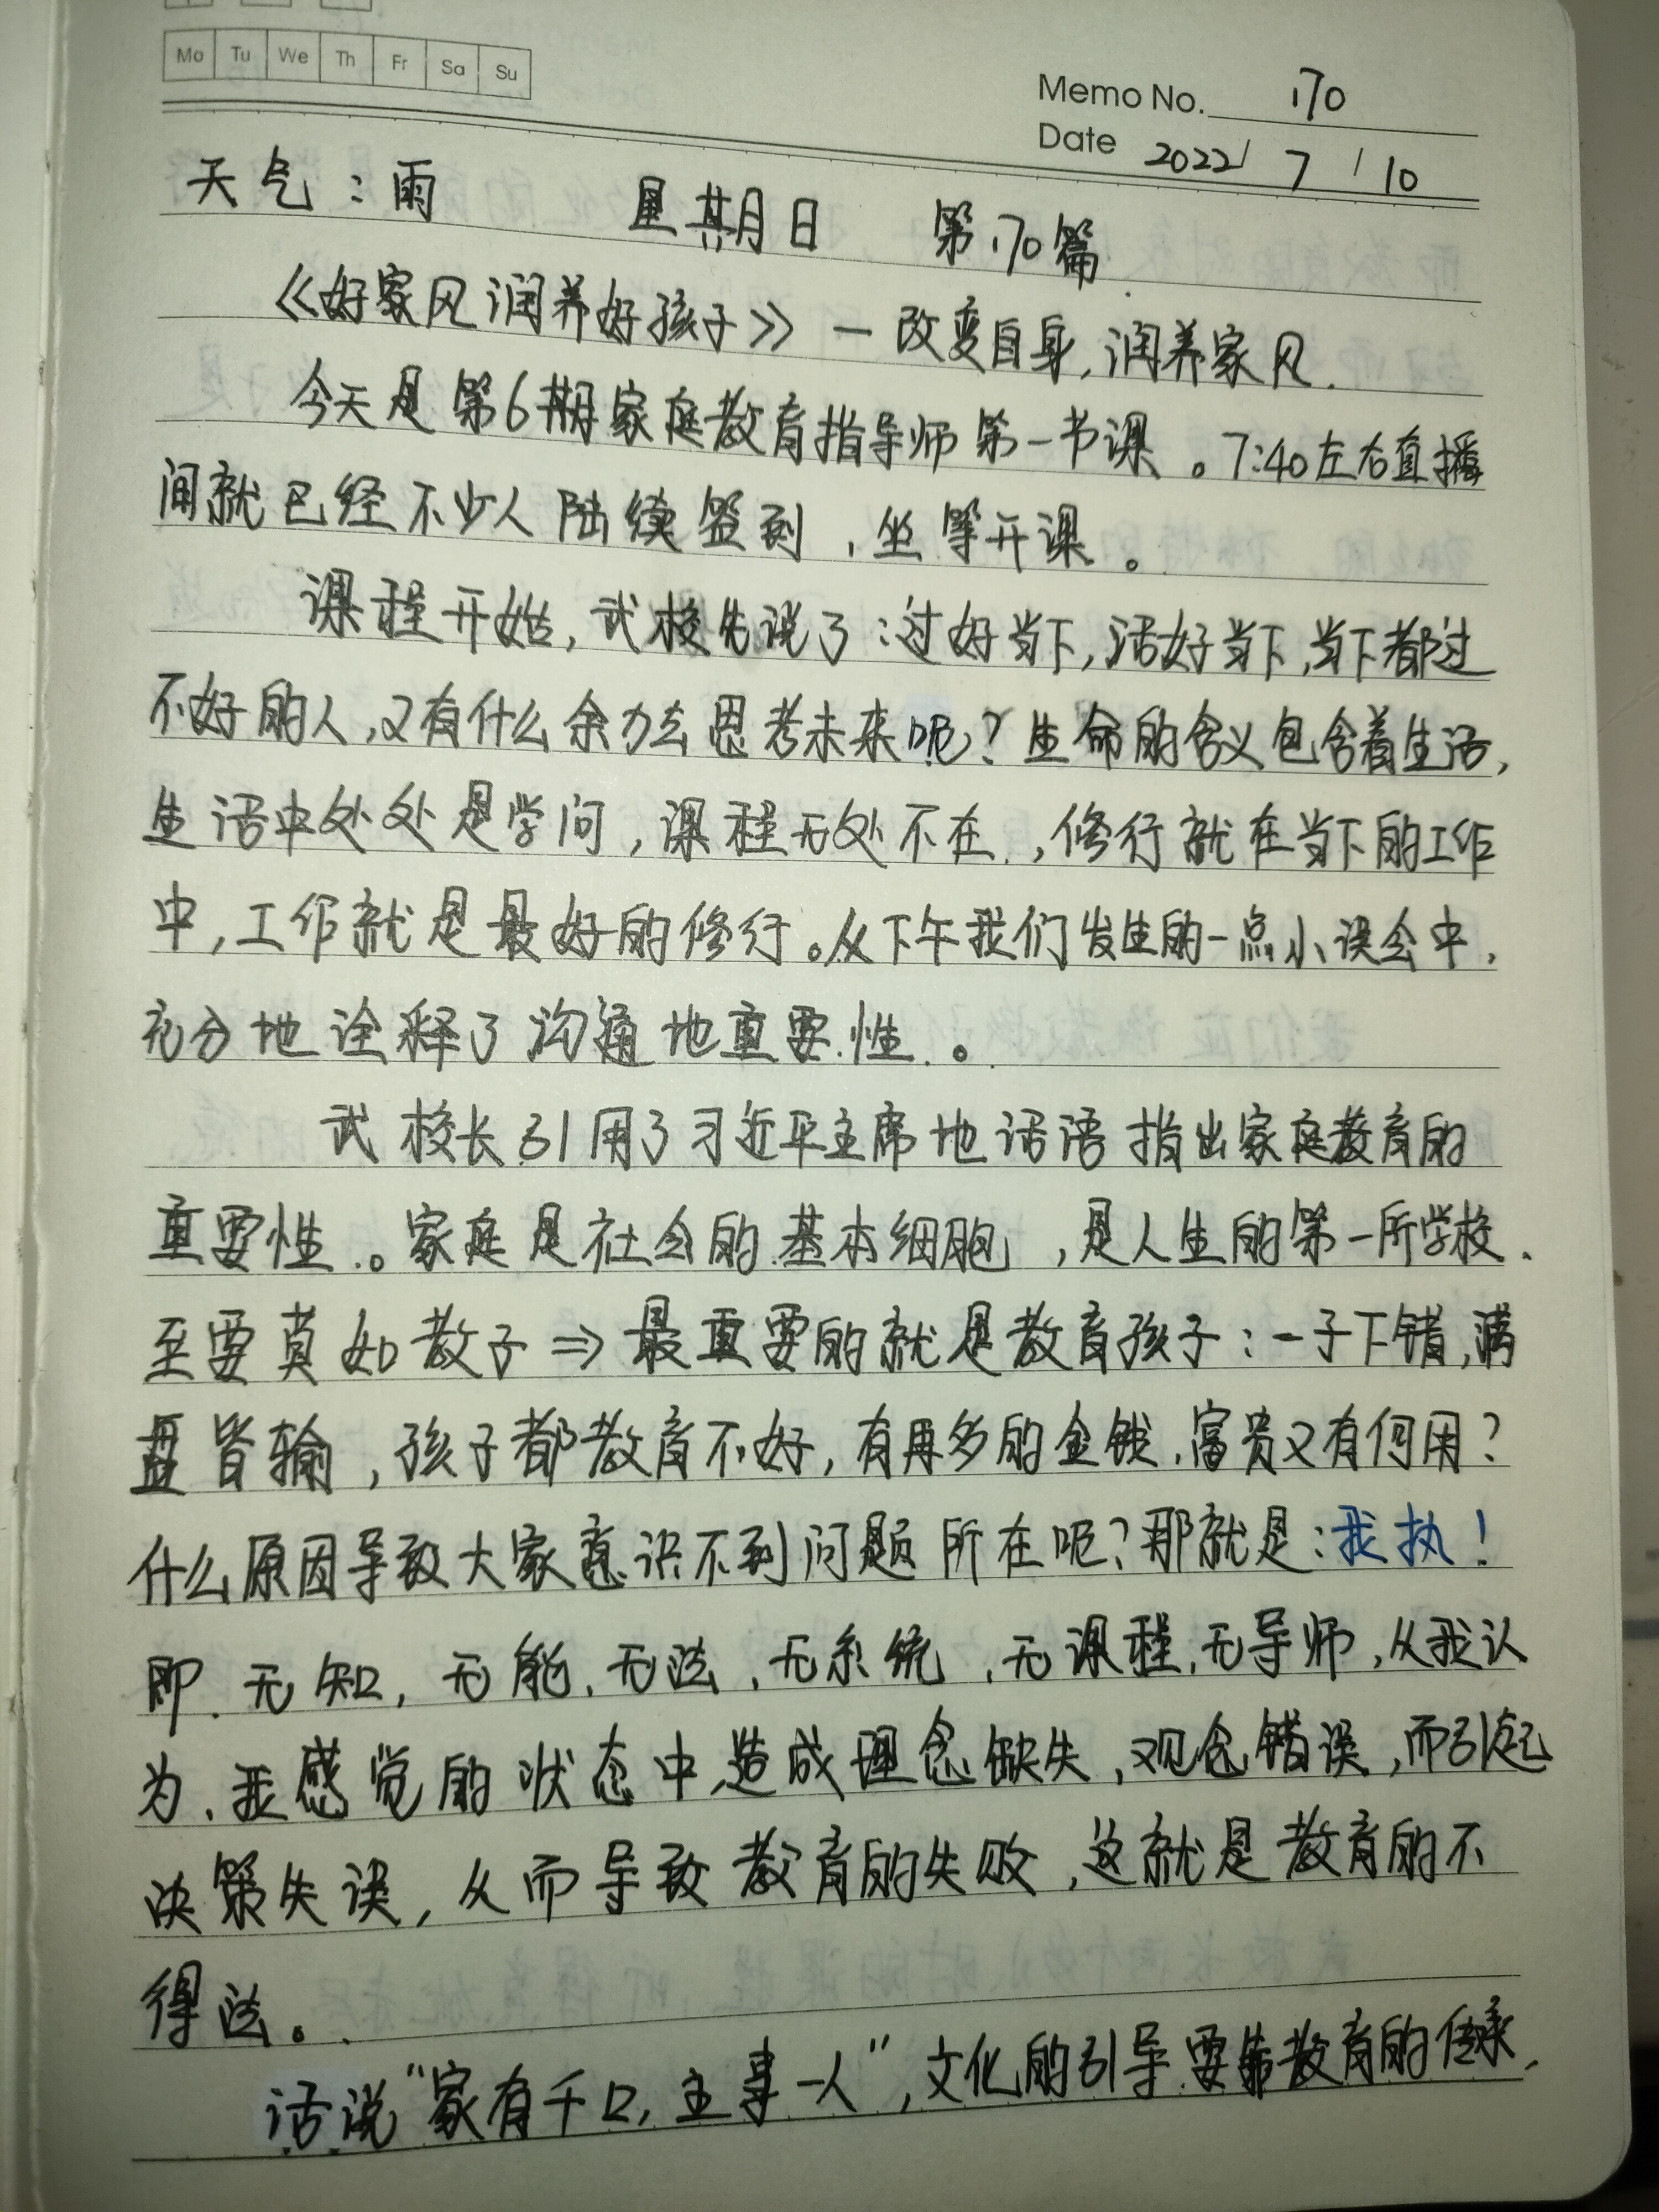 Mo Tu We Th Fr Sa Su
Memo No. 170
Date 2022/ 7 / 10
天气：雨 星期日 第170篇
《好家风润养好孩子》—改变自身，润养家风.
今天是第6期家庭教育指导师第一节课。7:40左右直播
间就已经不少人陆续签到，坐等开课。
课程开始，武校先说了：过好当下，活好当下，当下都过
不好的人，又有什么余力去思考未来呢？生命的含义包含着生活，
生活中处处是学问，课程无处不在，修行就在当下的工作
中，工作就是最好的修行。从下午我们发生的一点小误会中，
充分地诠释了沟通地重要性。
武校长引用了习近平主席地话语指出家庭教育的
重要性。家庭是社会的基本细胞，是人生的第一所学校.
至要莫如教子⇒最重要的就是教育孩子：一子下错，满
盘皆输，孩子都教育不好，有再多的金钱、富贵又有何用？
什么原因导致大家意识不到问题所在呢？那就是：我执！
即.无知，无能、无法、无系统、无课程、无导师，从我认
为、我感觉的状态中，造成理念缺失、观念错误，而引起
决策失误，从而导致教育的失败，这就是教育的不
得法。
话说“家有千口，主事一人”，文化的引导要靠教育的传承，